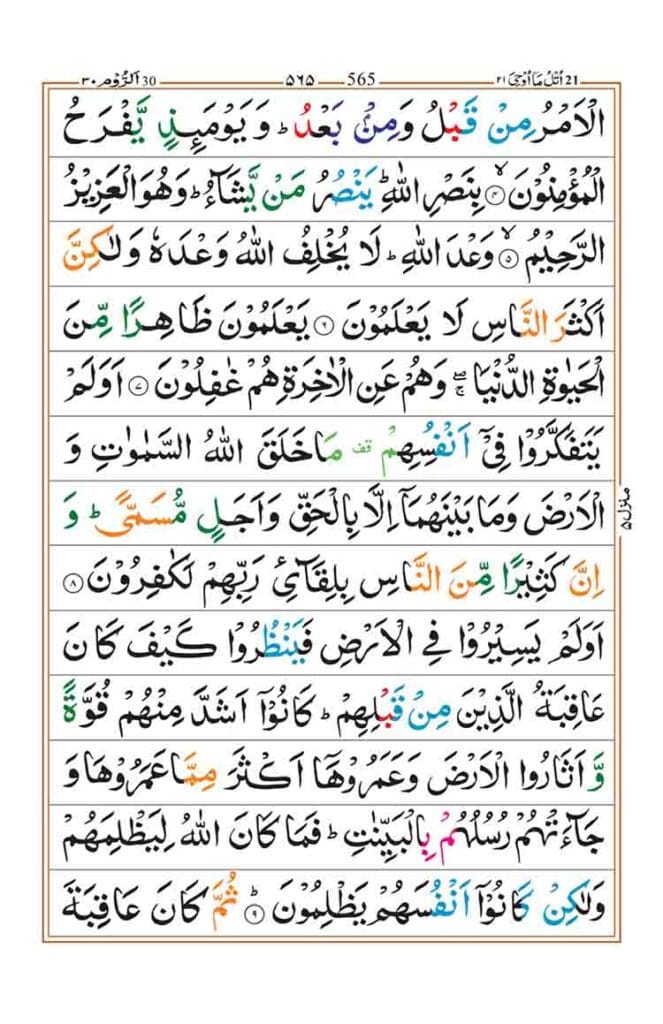 اَلرُّوْم ٣٠ 30 ٥٦٥ 565 اُتْلُ مَاۤ اُوْحِیَ ٢١ 21
الْاَمْرُ مِنْ قَبْلُ وَمِنْۢ بَعْدُ ؕ وَ یَوْمَىِٕذٍ یَّفْرَحُ
الْمُؤْمِنُوْنَ ۙ﴿۴﴾ بِنَصْرِ اللّٰهِ ؕ یَنْصُرُ مَنْ یَّشَآءُ ؕ وَهُوَ الْعَزِیْزُ
الرَّحِیْمُ ۙ﴿۵﴾ وَعْدَ اللّٰهِ ؕ لَا یُخْلِفُ اللّٰهُ وَعْدَهٗ وَلٰكِنَّ
اَكْثَرَ النَّاسِ لَا یَعْلَمُوْنَ ﴿۶﴾ یَعْلَمُوْنَ ظَاهِرًا مِّنَ
الْحَیٰوةِ الدُّنْیَا ۖۚ وَهُمْ عَنِ الْاٰخِرَةِ هُمْ غٰفِلُوْنَ ﴿۷﴾ اَوَلَمْ
یَتَفَكَّرُوْا فِیْۤ اَنْفُسِهِمْ قف مَا خَلَقَ اللّٰهُ السَّمٰوٰتِ وَ
الْاَرْضَ وَمَا بَیْنَهُمَاۤ اِلَّا بِالْحَقِّ وَاَجَلٍ مُّسَمًّی ؕ وَ
اِنَّ كَثِیْرًا مِّنَ النَّاسِ بِلِقَآئِ رَبِّهِمْ لَكٰفِرُوْنَ ﴿۸﴾
اَوَلَمْ یَسِیْرُوْا فِی الْاَرْضِ فَیَنْظُرُوْا كَیْفَ كَانَ
عَاقِبَةُ الَّذِیْنَ مِنْ قَبْلِهِمْ ؕ كَانُوْۤا اَشَدَّ مِنْهُمْ قُوَّةً
وَّ اَثَارُوا الْاَرْضَ وَعَمَرُوْهَاۤ اَكْثَرَ مِمَّا عَمَرُوْهَا وَ
جَآءَتْهُمْ رُسُلُهُمْ بِالْبَیِّنٰتِ ؕ فَمَا كَانَ اللّٰهُ لِیَظْلِمَهُمْ
وَلٰكِنْ كَانُوْۤا اَنْفُسَهُمْ یَظْلِمُوْنَ ؕ﴿۹﴾ ثُمَّ كَانَ عَاقِبَةَ
منزل ۵